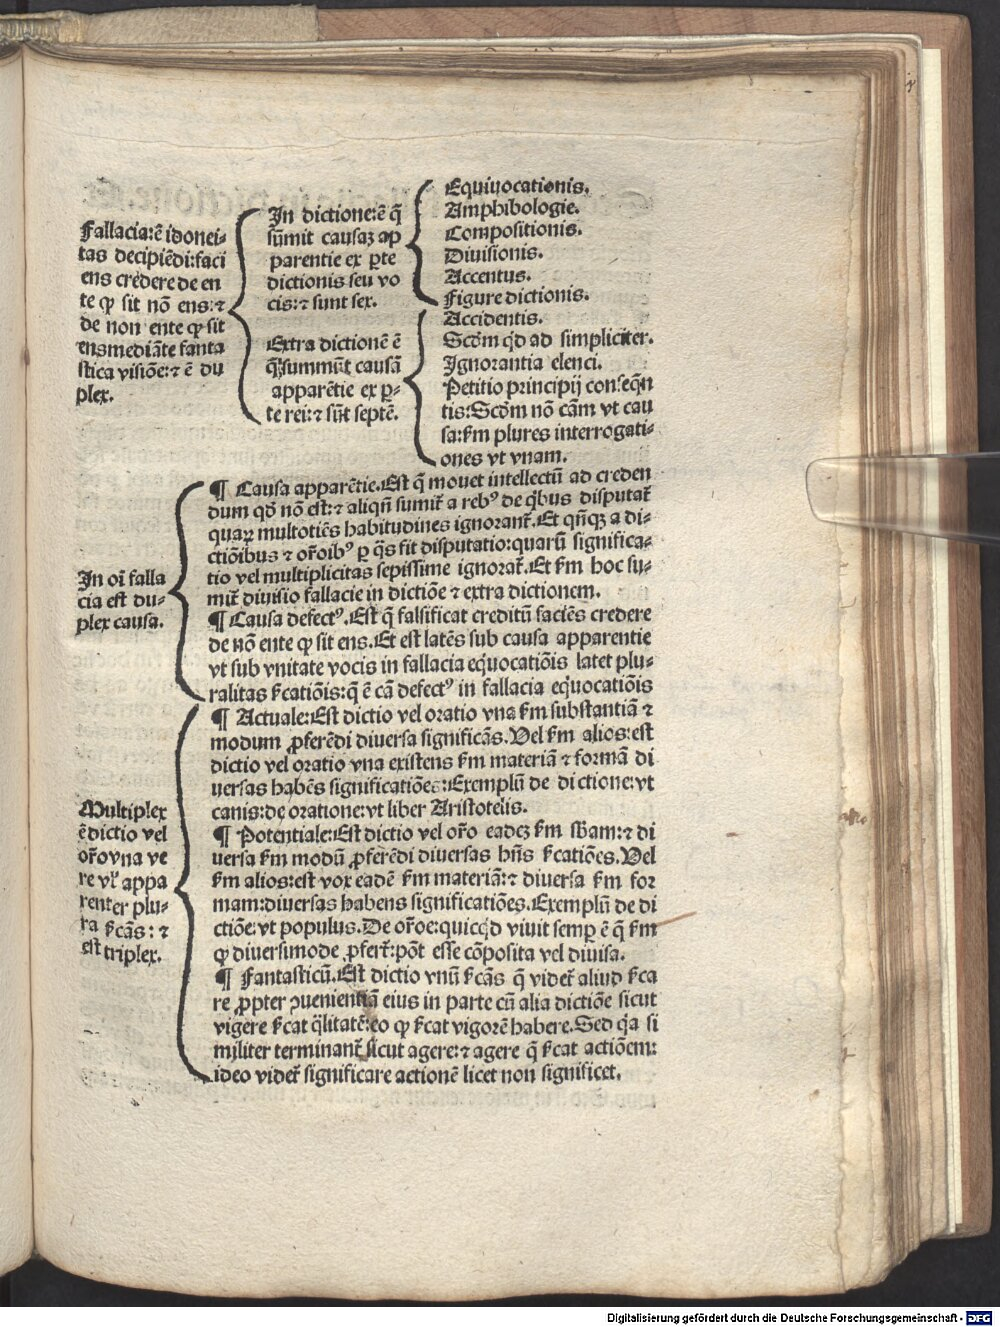 Fallacia:ē idonei-
tas decipiēdi:faci
ens credere de en
te ꝙ sit nō ens:⁊
de non ente ꝙ sit
ens mediāte fanta
stica visiōe:⁊ ē du
plex.
In dictione:ē q̄
sūmit causaꝫ ap
parentie ex ꝑte
dictionis seu vo
cis:⁊ sunt sex.
Equiuocationis.
Amphibologie.
Compositionis.
Diuisionis.
Accentus.
Figure dictionis.
Extra dictionē ē
q̄ summūt causā
apparētie ex ꝑ-
te rei:⁊ sūt septē.
Accidentis.
Scdm qd ad simpliciter.
Ignorantia elenci.
Petitio principij conseqn̄
tis:Scdm nō cām vt cau
sa:ẜm plures interrogati-
ones vt vnam.
In oī falla
cia est du-
plex causa.
¶ Causa apparētie.Est q̄ mouet intellectū ad creden
dum qd nō est:⁊ aliqn̄ sumit̄ a rebꝰ de qbus disputat̄
quaꝝ multotiēs habitudines ignorant̄.Et qn̄qꝫ a di-
ctiōibus ⁊ or̄oibꝰ ꝑ q̄s fit disputatio:quarū significa-
tio vel multiplicitas sepissime ignorat̄.Et ẜm hoc su-
mit̄ diuisio fallacie in dictiōe ⁊ extra dictionem.
¶ Causa defectꝰ.Est q̄ falsificat creditū faciēs credere
de nō ente ꝙ sit ens.Et est latēs sub causa apparentie
vt sub vnitate vocis in fallacia eq̇uocatiōis latet plu-
ralitas ẜcatiōis:q̄ ē cā defectꝰ in fallacia eq̇uocatiōis
Multiplex
ē dictio vel
or̄o vna ve
re vl̓ appa
renter plu-
ra ẜcās:⁊
est triplex.
¶ Actuale:Est dictio vel oratio vna ẜm substantiā ⁊
modum ꝓferēdi diuersa significās.Vel ẜm alios:est
dictio vel oratio vna existens ẜm materiā ⁊ formā di
uersas habēs significatiōes:Exemplū de dictione:vt
canis:de oratione:vt liber Aristotelis.
¶ Potentiale:Est dictio vel or̄o eadeꝫ ẜm sbam:⁊ di
uersa ẜm modū ꝓferēdi diuersas hn̄s ẜcatiōes.Vel
ẜm alios:est vox eadē ẜm materiā:⁊ diuersa ẜm for
mam:diuersas habens significatiōes.Exemplū de di
ctiōe:vt populus.De or̄oe:quicqd viuit semꝑ ē q̄ ẜm
ꝙ diuersimode ꝓfert̄:pōt esse cōposita vel diuisa.
¶ Fantasticū.Est dictio vnū ẜcās q̄ videt̄ aliud ẜca
re ꝓpter ꝯuenientiā eius in parte cū alia dictiōe sicut
vigere ẜcat q̄litatē:eo ꝙ ẜcat vigorē habere.Sed q̇a si
militer terminant̄ sicut agere:⁊ agere q̄ ẜcat actiōem:
ideo videt̄ significare actionē licet non significet.
Digitalisierung gefördert durch die Deutsche Forschungsgemeinschaft - DFG